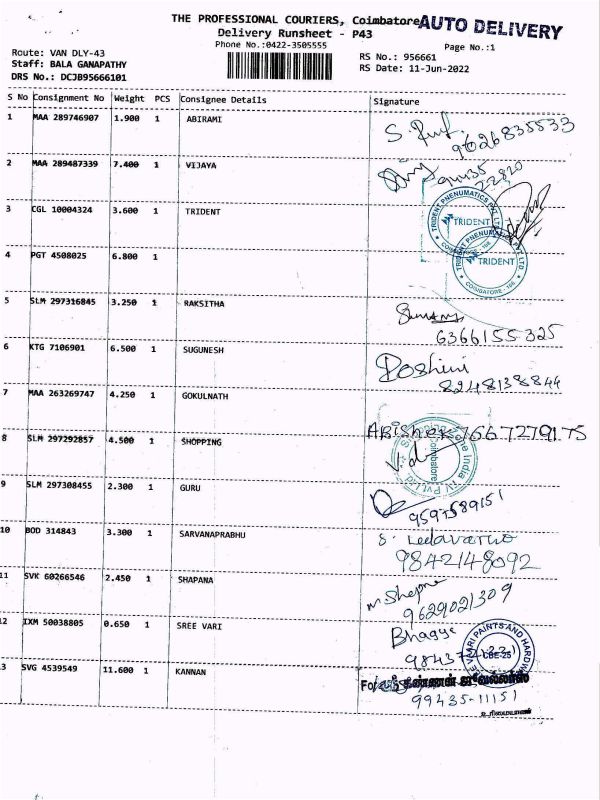 THE PROFESSIONAL COURIERS, Coimbatore
AUTO DELIVERY
Delivery Runsheet - P43
Phone No.:0422-3505555
Page No.:1
Route: VAN DLY-43
RS No.: 956661
Staff: BALA GANAPATHY
RS Date: 11-Jun-2022
DRS No.: DCJB95666101
S No Consignment No Weight PCS Consignee Details Signature
1 MAA 289746907 1.900 1 ABIRAMI
9626835533
2 MAA 289487339 7.400 1 VIJAYA
3 CGL 10004324 3.600 1 TRIDENT
TRIDENT PNEUMATICS PVT. LTD.
TRIDENT
COIMBATORE
4 PGT 4508025 6.800 1
TRIDENT PNEUMATICS PVT. LTD.
TRIDENT
COIMBATORE
5 SLM 297316845 3.250 1 RAKSITHA
6366155325
6 KTG 7106901 6.500 1 SUGUNESH
Doshini
8248138844
7 MAA 263269747 4.250 1 GOKULNATH
ABISHEK 7667279175
8 SLM 297292857 4.500 1 SHOPPING
Shopping Zone India TV Pvt Ltd
Coimbatore
9 SLM 297308455 2.300 1 GURU
9597589151
10 BOD 314843 3.300 1 SARVANAPRABHU
9842148092
11 SVK 60266546 2.450 1 SHAPANA
9629021309
12 IXM 50038805 0.650 1 SREE VARI
VAARI PAINTS AND HARDW
CBE-25
13 SVG 4539549 11.600 1 KANNAN
For
99435-11151